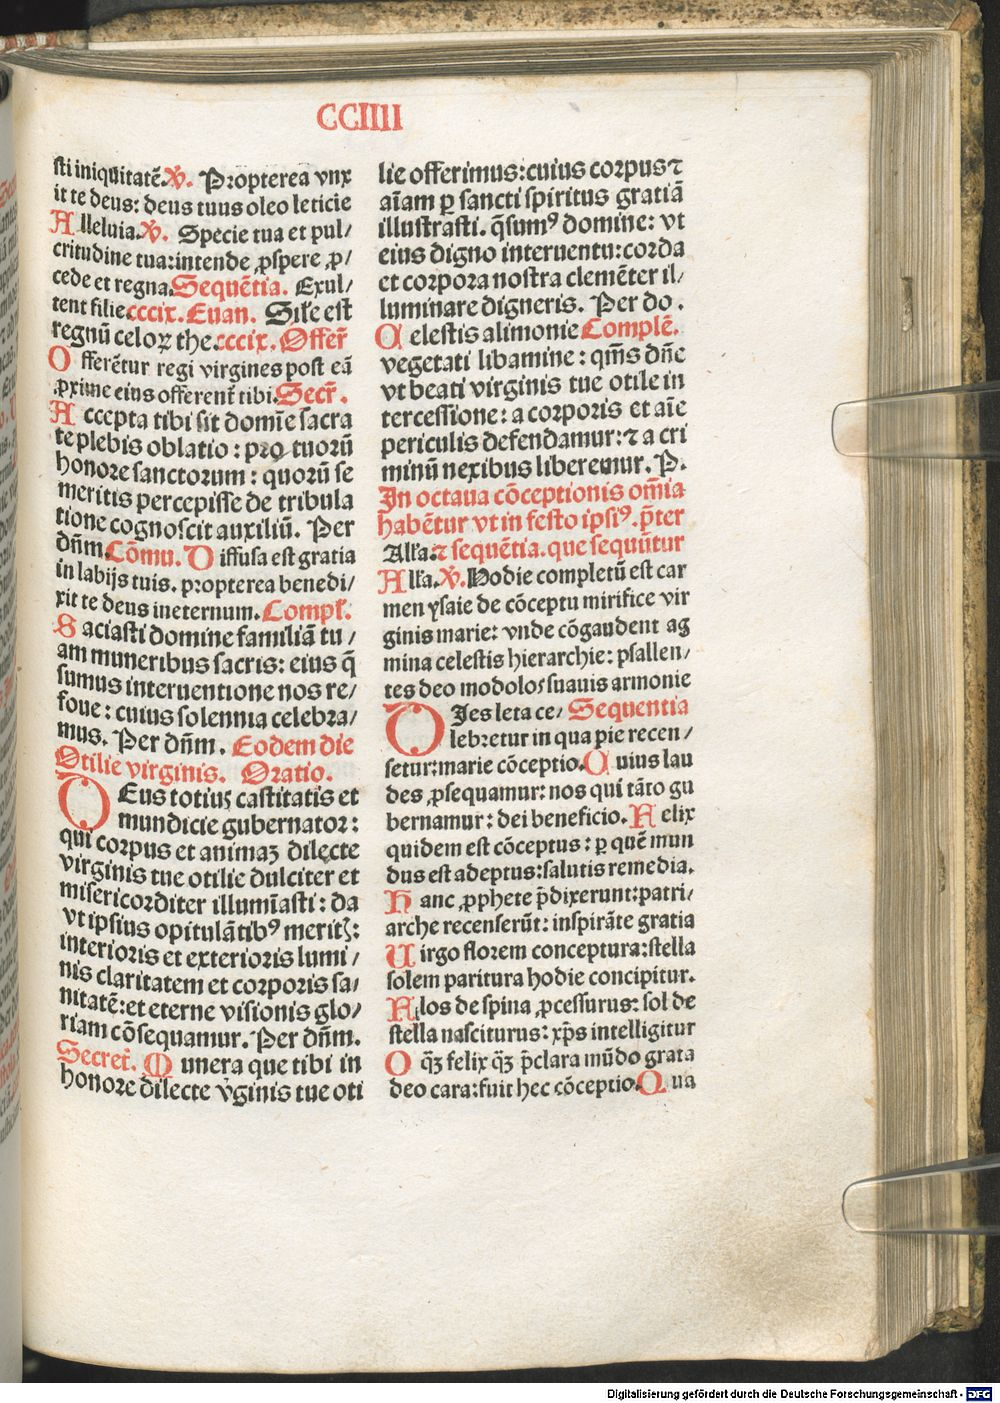 CCIIII
sti iniquitatē. ℣. Propterea vnx
it te deus: deus tuus oleo leticie
Alleluia. ℣. Specie tua et pul/
critudine tua: intende ꝓspere ꝓ/
cede et regna. Sequētia. Exul/
tent filie cccix. Euan. Sil'e est
regnū celoꝝ the. cccix. Offer̄
Offerētur regi virgines post eā
ꝓxime eius offerent᷑ tibi. Secr̄.
Accepta tibi sit domīe sacra
te plebis oblatio: pro tuorū
honore sanctorum: quorū se
meritis percepisse de tribula
tione cognoscit auxiliū. Per
dn̄m. Cōmu. Diffusa est gratia
in labijs tuis. propterea benedi/
xit te deus ineternum. Compl'.
Saciasti domine familiā tu/
am muneribus sacris: eius q̄
sumus interuentione nos re/
foue: cuius solennia celebra/
mus. Per dn̄m. Eodem die
Otilie virginis. Oratio.
DEus totiuꝫ castitatis et
mundicie gubernator:
qui corpus et animaꝫ dilecte
virginis tue otilie dulciter et
misericorditer illumīasti: da
vt ipsius opitulātibꝰ meritꝭ:
interioris et exterioris lumi/
nis claritatem et corporis sa/
nitatē: et eterne visionis glo/
riam cōsequamur. Per dn̄m.
Secret᷑. Munera que tibi in
honore dilecte v̄ginis tue oti
lie offerimus: cuius corpus ⁊
aīam ꝑ sancti spiritus gratiā
illustrasti. q̄sumꝰ domine: vt
eius digno interuentu: corda
et corpora nostra clemēter il/
luminare digneris. Per do.
Celestis alimonie Complē.
vegetati libamine: qm̄s dn̄e
vt beati virginis tue otile in
tercessione: a corporis et aīe
periculis defendamur: ⁊ a cri
minū nexibus liberemur. P.
In octaua cōceptionis om̄ia
habētur vt in festo ipsiꝰ. p̄ter
All'a. ⁊ sequētia. que sequūtur
All'a. ℣. Hodie completū est car
men ysaie de cōceptu mirifice vir
ginis marie: vnde cōgaudent ag
mina celestis hierarchie: psallen/
tes deo modolos suauis armonie
DIes leta ce/ Sequentia
lebretur in qua pie recen/
setur: marie cōceptio. Cuius lau
des ꝓsequamur: nos qui tāto gu
bernamur: dei beneficio. Felix
quidem est cōceptus: ꝑ quē mun
dus est adeptus: salutis remedia.
Hanc ꝓphete p̄dixerunt: patri/
arche recenserūt: inspirāte gratia
Uirgo florem conceptura: stella
solem paritura hodie concipitur.
Flos de spina ꝓcessurus: sol de
stella nasciturus: xp̄s intelligitur
O q̄ꝫ felix q̄ꝫ p̄clara mūdo grata
deo cara: fuit hec cōceptio. Qua
Digitalisierung gefördert durch die Deutsche Forschungsgemeinschaft - DFG